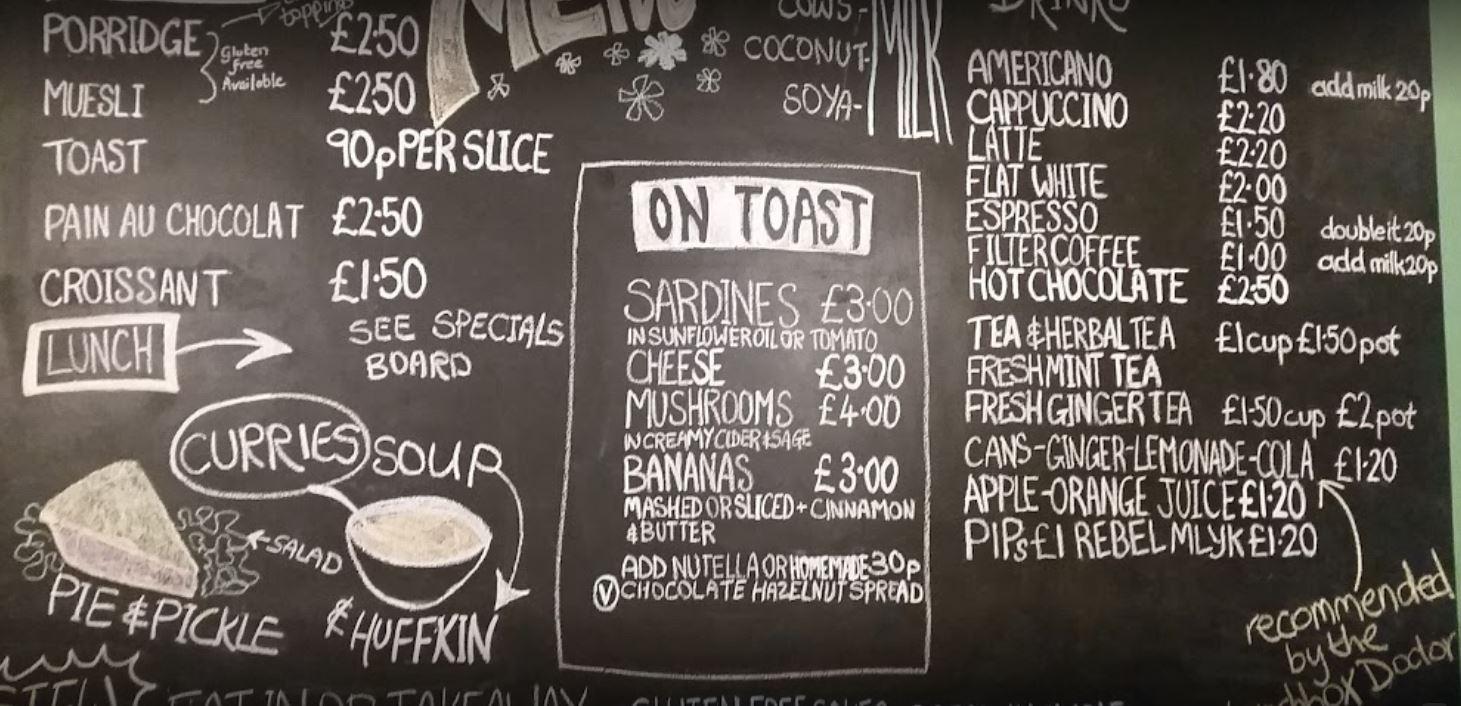 toppings
PORRIDGE £2·50
Gluten
free
Available
MUESLI £250
TOAST 90p PER SLICE
PAIN AU CHOCOLAT £2·50
CROISSANT £1·50
LUNCH SEE SPECIALS
BOARD
CURRIES SOUP
SALAD
PIE & PICKLE
& HUFFKIN
EAT IN OR TAKEAWAY
MENU
COWS-
COCONUT-
SOYA-
MILK
ON TOAST
SARDINES £3·00
IN SUNFLOWER OIL OR TOMATO
CHEESE £3·00
MUSHROOMS £4·00
IN CREAMY CIDER & SAGE
BANANAS £3·00
MASHED OR SLICED + CINNAMON
& BUTTER
ADD NUTELLA OR HOMEMADE 30p
Ⓥ CHOCOLATE HAZELNUT SPREAD
GLUTEN FREE
DRINKS
AMERICANO £1·80 add milk 20p
CAPPUCCINO £2·20
LATTE £2·20
FLAT WHITE £2·00
ESPRESSO £1·50 double it 20p
FILTER COFFEE £1·00 add milk 20p
HOT CHOCOLATE £2·50
TEA & HERBAL TEA £1 cup £1·50 pot
FRESH MINT TEA
FRESH GINGER TEA £1·50 cup £2 pot
CANS-GINGER-LEMONADE-COLA £1·20
APPLE-ORANGE JUICE £1·20
PIPs £1 REBEL MLYK £1·20
recommended
by the
Doctor